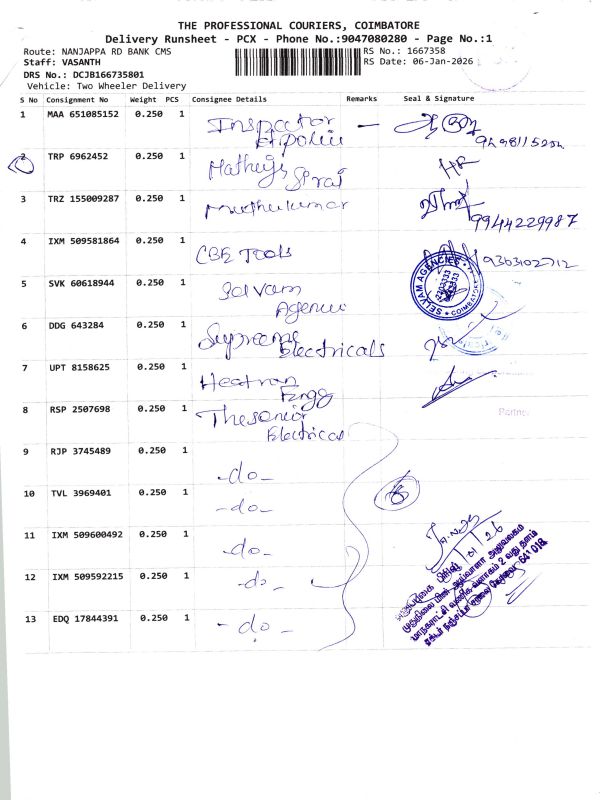 THE PROFESSIONAL COURIERS, COIMBATORE
Delivery Runsheet - PCX - Phone No.:9047080280 - Page No.:1
Route: NANJAPPA RD BANK CMS RS No.: 1667358
Staff: VASANTH RS Date: 06-Jan-2026
DRS No.: DCJB166735801
Vehicle: Two Wheeler Delivery
S No Consignment No Weight PCS Consignee Details Remarks Seal & Signature
1 MAA 651085152 0.250 1 Inspector —
2 TRP 6962452 0.250 1 HR
3 TRZ 155009287 0.250 1 Muthukumar
9944229987
4 IXM 509581864 0.250 1 CBE Tools 9363102712
5 SVK 60618944 0.250 1
SELVAM AGENCIES COIMBATORE
6 DDG 643284 0.250 1 Supreme
Electricals
7 UPT 8158625 0.250 1 Heatron
Engg
8 RSP 2507698 0.250 1
Electrical
Partner
9 RJP 3745489 0.250 1 -do-
10 TVL 3969401 0.250 1 -do-
11 IXM 509600492 0.250 1 -do-
12 IXM 509592215 0.250 1 -do-
13 EDQ 17844391 0.250 1 -do-
641 018